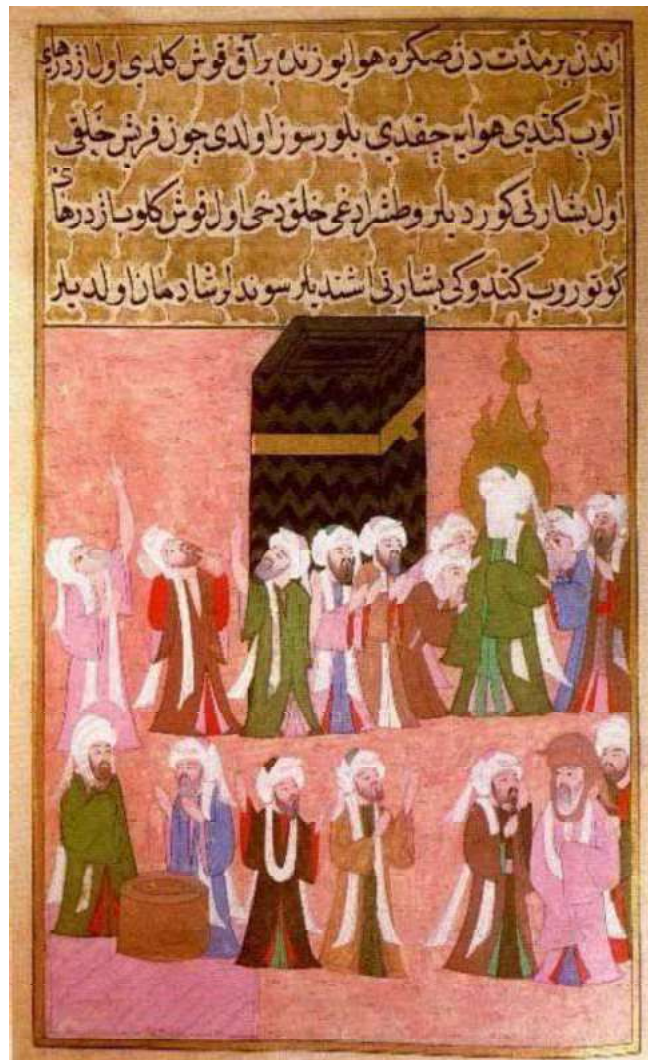 اندن بر مدّت دن صكره هوا یوزنده بر آق قوش كلدی اول اژدرهایی
آلوب كتدی هوایه چقدی بلورسوز اولدی چون قریش خلقی
اول بشارتی كوردیلر و طشرادغی خلق دخی اول قوش كلوب اژدرهای
كوتوروب كتدوكی بشارتی اشتدیلر سوندلر شادمان اولدیلر